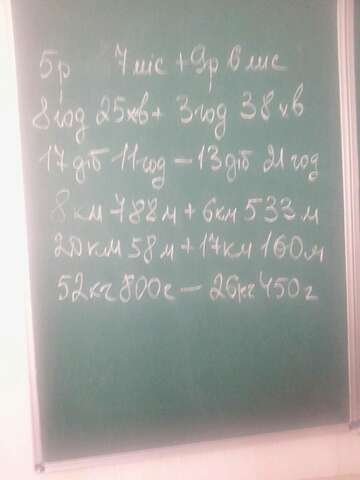 5р 7міс + 9р 6 міс
8год 25хв + 3год 38хв
17діб 11год - 13діб 21год
8км 788м + 6км 533м
20км 58м + 17км 160м
52кг 800г - 26кг 450г